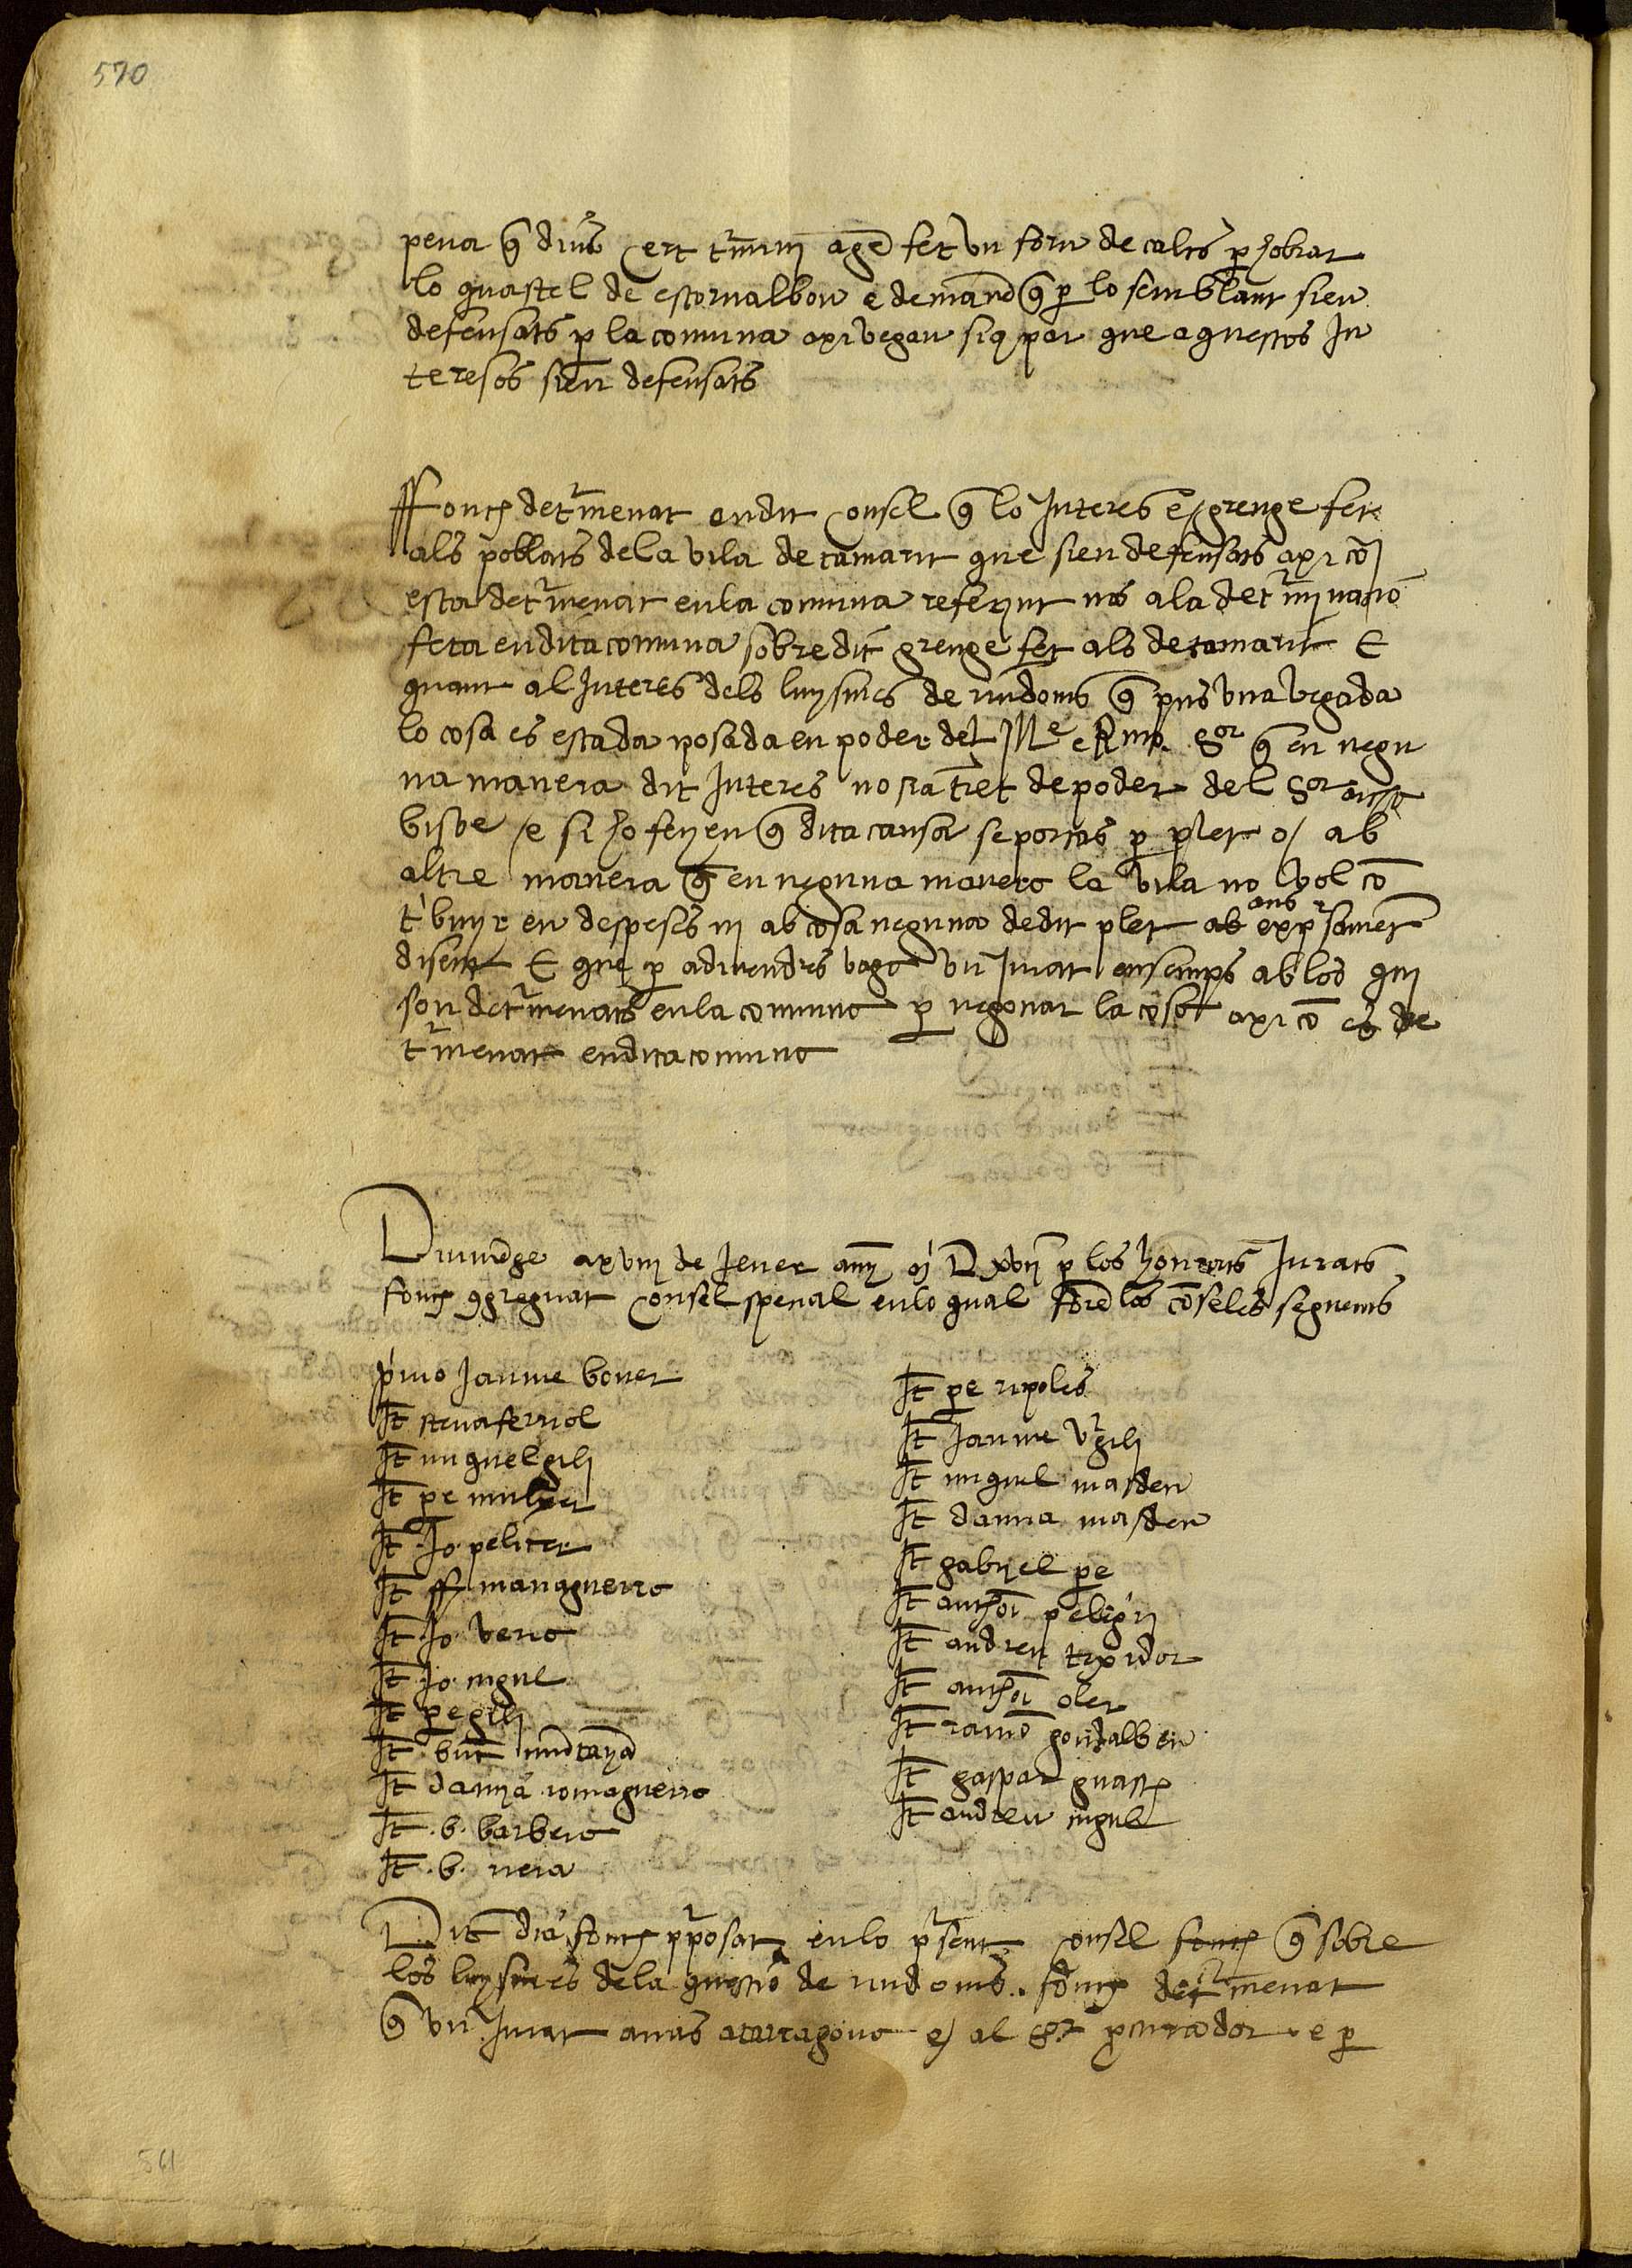 570
pena q̃ dins cert t̃mini agē fet vn forn de cals p̱ hobrar
lo quastel de escornalbou e demanē q̃ p̱ lo semblant sien
defensats p̱ la comuna axi vegan siꝯ par que aquestos In
teresos sien defensats
Ffonch det̃menat en dit Consel q̃ lo Interes e greuge fet
als poblats de la vila de tamarit que sien defensats axi cõ
esta det̃menat en la comuna referint nos a la det̃minacio
feta en dita comuna sobre dit greuge fet als de tamarit E
quant al Interes dels luysmes de riudoms q̃ pus vna vegada
la cosa es estada posada en poder del Ille e Rmo. Sor q̃ en negu
na manera dit Interes no sia tret de poder del Sor arsa
bisbe e si ho feyen q̃ dita causa se portas p̱ plet o ab
altre manera q̃ en neguna manera la vila no vol cõ
t'buyr en despeses ni ab cosa neguna de dit plet ab ans exp̃samēt
disent E que p̱ adivendres vage vn Jurat ensemps ab los qui
son det̃menats en la comuna p̱ negociar la cosa axi cõ es de
t̃menat en dita comuna
Diumēge a xviij de Jener any M D xviij p̱ los honrats Jurats
fonch 9gregnat Consel special en lo qual forē los cõseles seguents
p'mo Jaume boner
It̃ steva ferriol
It̃ miquel gili
It̃ pe mulner
It̃ Jo peliter
It̃ ff managuerra
It̃ Jo. vera
It̃ Jo. nigul
It̃ pe gili
It̃ bñt mūtanyā
It̃ damia romaguerra
It̃ .b. barbera
It̃ .b. riera
It̃ pe ripoles
It̃ Jaume v'gili
It̃ miquel masdeu
It̃ damia masdeu
It̃ gabriel pe
It̃ anthoi peleg'i
It̃ andreu texidor
It̃ anthoi oler
It̃ ramō gondalbeu
It̃ gaspar guasch
It̃ andreu nigul
Dit dia fonch p̱posat en lo p̃sent Consel fonch q̃ sobre
los luysmes de la questio de riudoms. fonch det̃menat
q̃ vn Jurat anas a tarragona e al Sor p̱curador e p̱
561